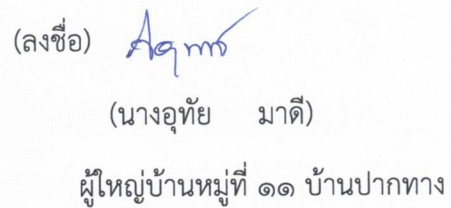 (ลงชื่อ)
(นางอุทัย มาดี)
ผู้ใหญ่บ้านหมู่ที่ ๑๑ บ้านปากทาง